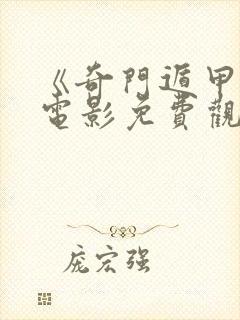 《奇門遁甲
電影免費觀
庞宏强